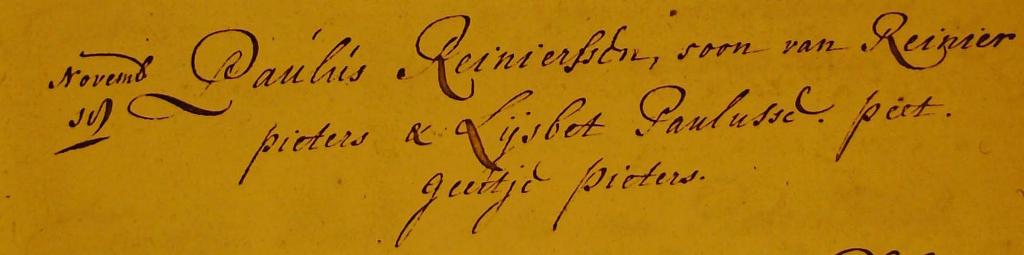 Novemb Paulus Reinierssen, soon van Reinier
pieters & Lijsbet Paulusse. peet.
geertje pieters.